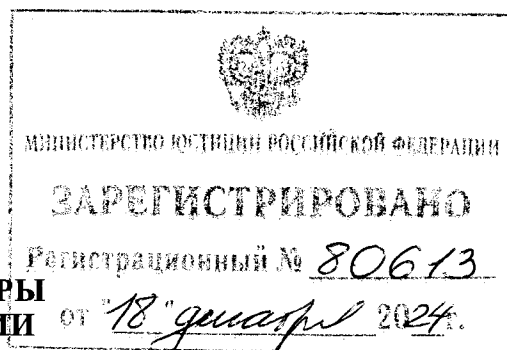 МИНИСТЕРСТВО ЮСТИЦИИ РОССИЙСКОЙ ФЕДЕРАЦИИ
ЗАРЕГИСТРИРОВАНО
Регистрационный № 80613
РЫ
от "18" декабря 2024г.
ИИ